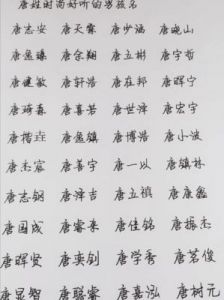 唐姓时尚好听的男孩名
唐志安 唐天霖 唐少涵 唐晓山
唐鱼臻 唐余翔 唐立彬 唐宇哲
唐健敏 唐轩浩 唐在邦 唐晖宁
唐琦森 唐喜若 唐世泽 唐宏宇
唐楷垚 唐鱼镇 唐博浩 唐小波
唐杰宸 唐善宇 唐一以 唐镇林
唐志钢 唐泽吉 唐立稹 唐康鑫
唐国成 唐睿来 唐佳铭 唐振杰
唐晖贤 唐奕剑 唐学秀 唐茗俊
唐显智 唐璐睿 唐嘉泓 唐树元